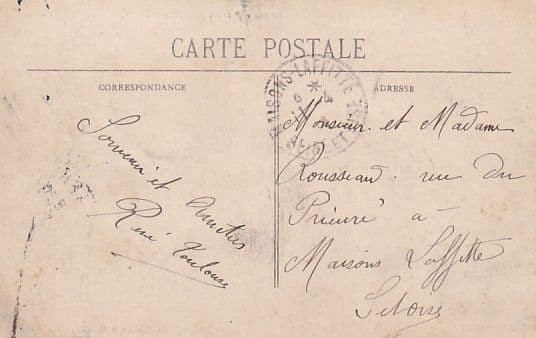 CARTE POSTALE
CORRESPONDANCE
ADRESSE
MAISONS-LAFFITTE
Souvenir et Amitiés
René Toulouse
Monsieur et Madame
Rousseau. rue du
Prieuré à
Maisons Laffitte
S et Oise